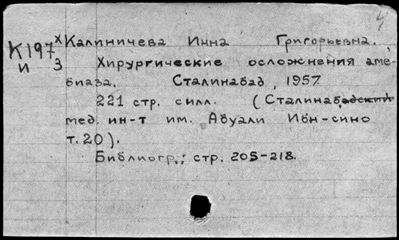 4
К197 х Калиничева Инна Григорьевна.
и 3 Хирургические осложнения аме-
биаза. Сталинабад, 1957
221 стр. силл. (Сталинабадский
мед. ин-т им. Абуали Ибн-сино
т.20).
Библиогр.: стр. 205-218.